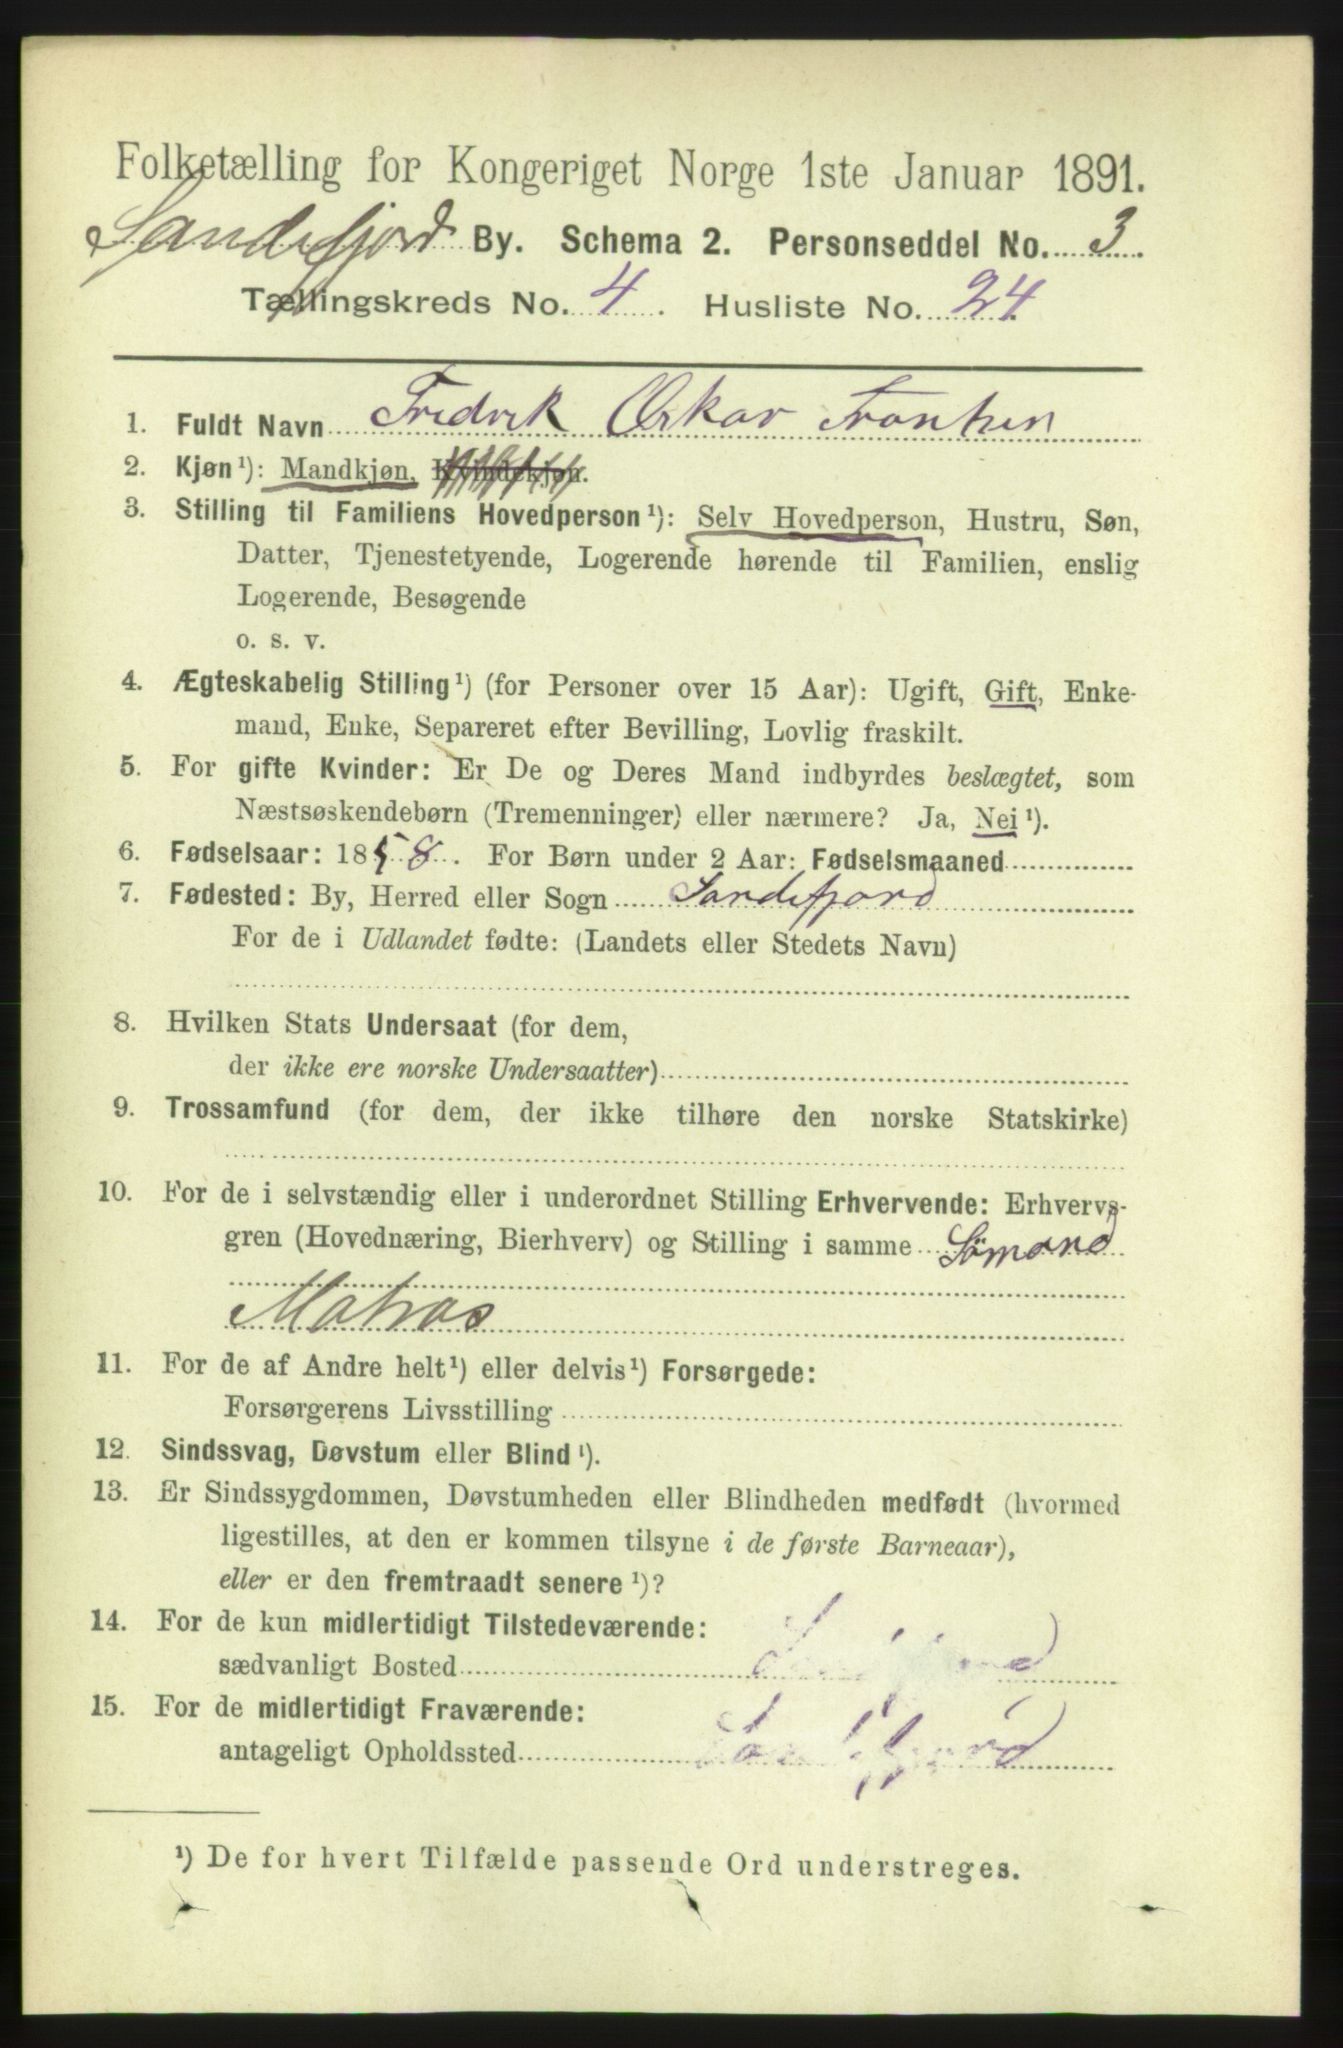 Folketælling for Kongeriget Norge 1ste Januar 1891.
Sandefjord By. Schema 2. Personseddel No. 3.
Tællingskreds No. 4. Husliste No. 24.
1. Fuldt Navn Fredrik Oskar
2. Kjøn ¹): Mandkjøn, Kvindekjøn.
3. Stilling til Familiens Hovedperson ¹): Selv Hovedperson, Hustru, Søn,
Datter, Tjenestetyende, Logerende hørende til Familien, enslig
Logerende, Besøgende
o. s. v.
4. Ægteskabelig Stilling ¹) (for Personer over 15 Aar): Ugift, Gift, Enke-
mand, Enke, Separeret efter Bevilling, Lovlig fraskilt.
5. For gifte Kvinder: Er De og Deres Mand indbyrdes beslægtet, som
Næstsøskendebørn (Tremenninger) eller nærmere? Ja, Nei ¹).
6. Fødselsaar: 1858. For Børn under 2 Aar: Fødselsmaaned
7. Fødested: By, Herred eller Sogn Sandefjord
For de i Udlandet fødte: (Landets eller Stedets Navn)
8. Hvilken Stats Undersaat (for dem,
der ikke ere norske Undersaatter)
9. Trossamfund (for dem, der ikke tilhøre den norske Statskirke)
10. For de i selvstændig eller i underordnet Stilling Erhvervende: Erhvervs-
gren (Hovednæring, Bierhverv) og Stilling i samme Sömand
Matros
11. For de af Andre helt ¹) eller delvis ¹) Forsørgede:
Forsørgerens Livsstilling
12. Sindssvag, Døvstum eller Blind ¹).
13. Er Sindssygdommen, Døvstumheden eller Blindheden medfødt (hvormed
ligestilles, at den er kommen tilsyne i de første Barneaar),
eller er den fremtraadt senere ¹)?
14. For de kun midlertidigt Tilstedeværende:
sædvanligt Bosted Sandefjord
15. For de midlertidigt Fraværende:
antageligt Opholdssted Sandefjord
¹) De for hvert Tilfælde passende Ord understreges.